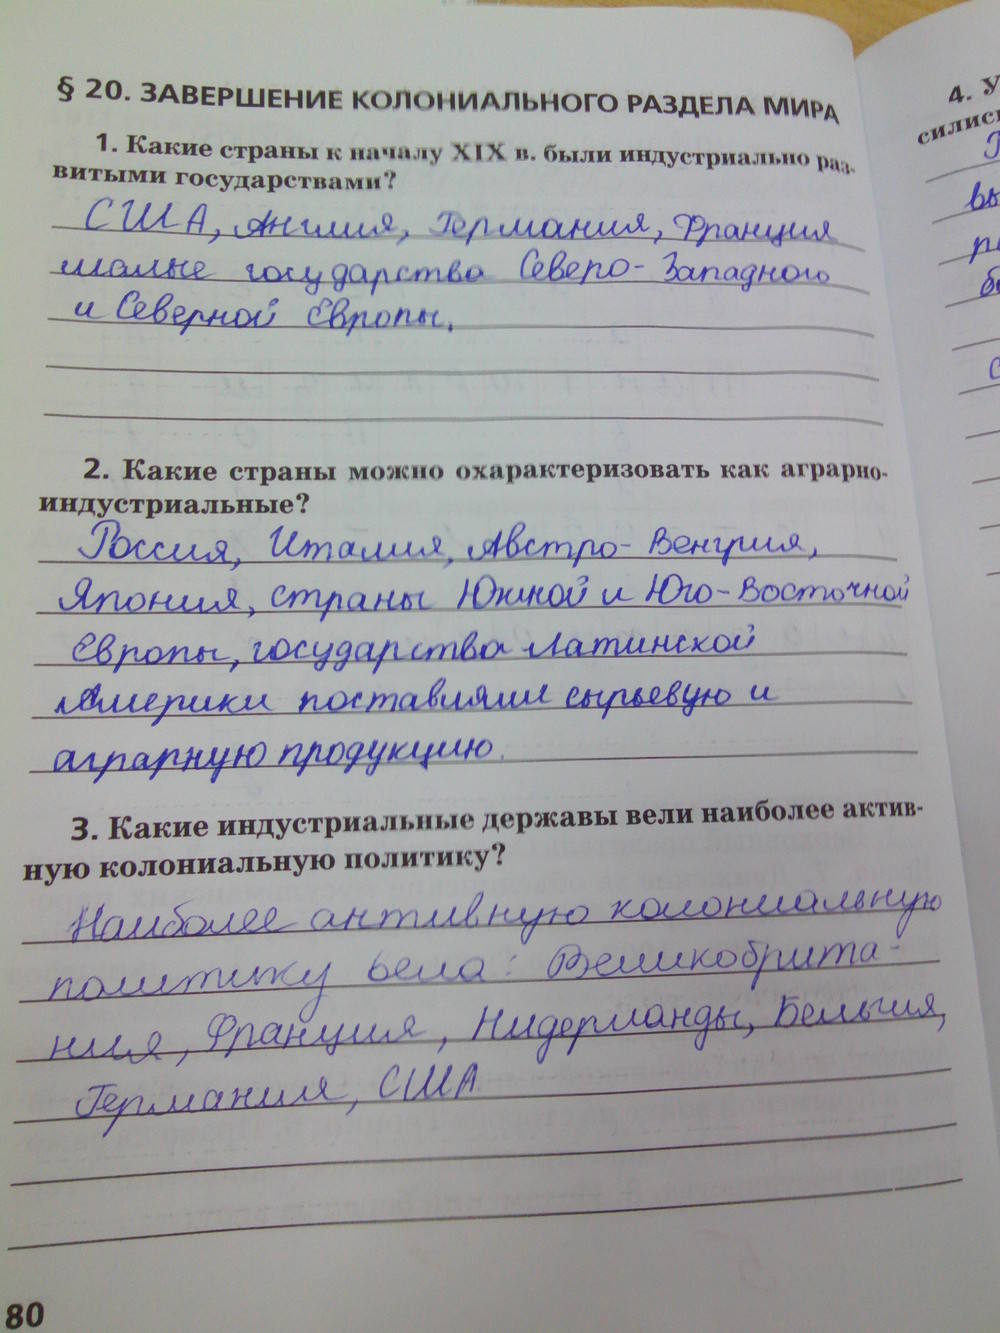 § 20. ЗАВЕРШЕНИЕ КОЛОНИАЛЬНОГО РАЗДЕЛА МИРА
1. Какие страны к началу XIX в. были индустриально раз-
витыми государствами?
США, Англия, Германия, Франция
малые государства Северо-Западного
и Северной Европы.
2. Какие страны можно охарактеризовать как аграрно-
индустриальные?
Россия, Италия, Австро-Венгрия,
Япония, страны Южной и Юго-Восточной
Европы, государства Латинской
Америки поставляли сырьевую и
аграрную продукцию.
3. Какие индустриальные державы вели наиболее актив-
ную колониальную политику?
Наиболее активную колониальную
политику вела: Великобрита-
ния, Франция, Нидерланды, Бельгия,
Германия, США
80
4. У
силис